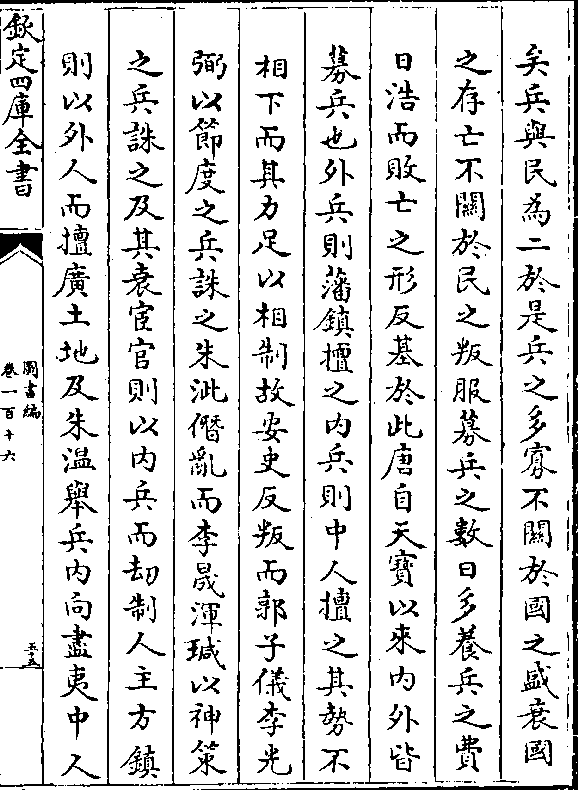 矣兵與民為二於是兵之多寡不關於國之盛衰國
之存亡不關於民之叛服募兵之數日多養兵之費
日浩而敗亡之形反基於此唐自天寶以來内外皆
募兵也外兵則藩鎮擅之内兵則中人擅之其勢不
相下而其力足以相制故安史反叛而郭子儀李光
弼以節度之兵誅之朱泚僭亂而李晟渾瑊以神策
之兵誅之及其衰宦官則以内兵而劫制人主方鎮
則以外人而擅廣土地及朱温舉兵内向盡夷中人
欽定四庫全書
圖書編
卷一百十六
五十五